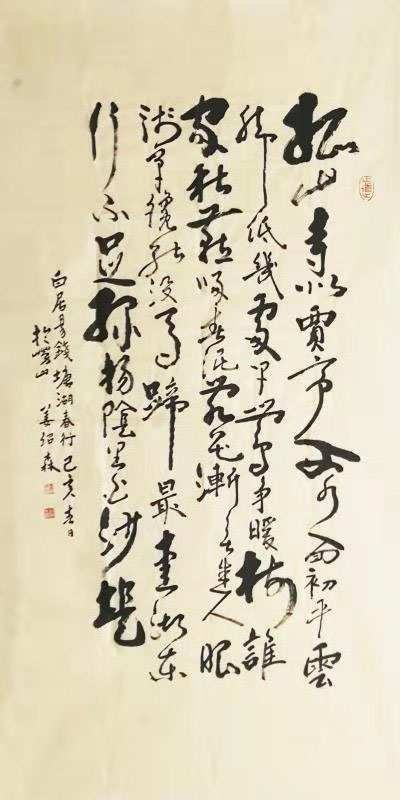 孤山寺北賈亭西水面初平雲
腳低幾處早鶯爭暖樹誰
家新燕啄春泥亂花漸欲迷人眼
淺草纔能沒馬蹄最愛湖東
行不足綠楊陰里白沙堤
白居易錢塘湖春行己亥春日
於嶗山 姜紹森